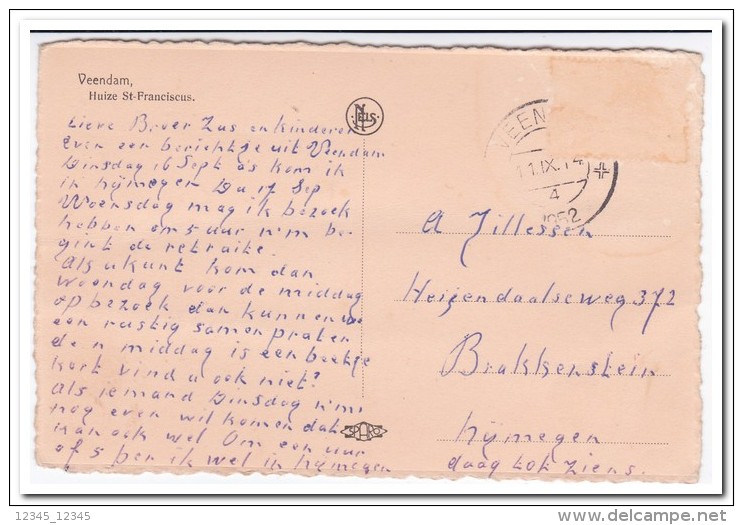 Veendam,
Huize St-Franciscus.
NELS
VEEN
11.IX.14
4
1952
Lieve Broer Zus en kinderen
Even een berichtje uit Veendam
Dinsdag 16 Sept a's kom ik
in Nijmegen Du 17 Sep
Woensdag mag ik bezoek
hebben om 5 uur n'm be-
gint de retraite.
Als u kunt kom dan
woendag voor de middag
op bezoek dan kunnen we
een rustig samen praten
de n middag is een beetje
kort vind u ook niet?
Als iemand Dinsdag n'mi
nog even wil komen dat
kan ook wel Om een uur
of 5 ben ik wel in Nijmegen
A Jillessen
Heijendaalseweg 372
Brakkenstein
Nijmegen
daag tot ziens.
12345_12345
delcampe.net